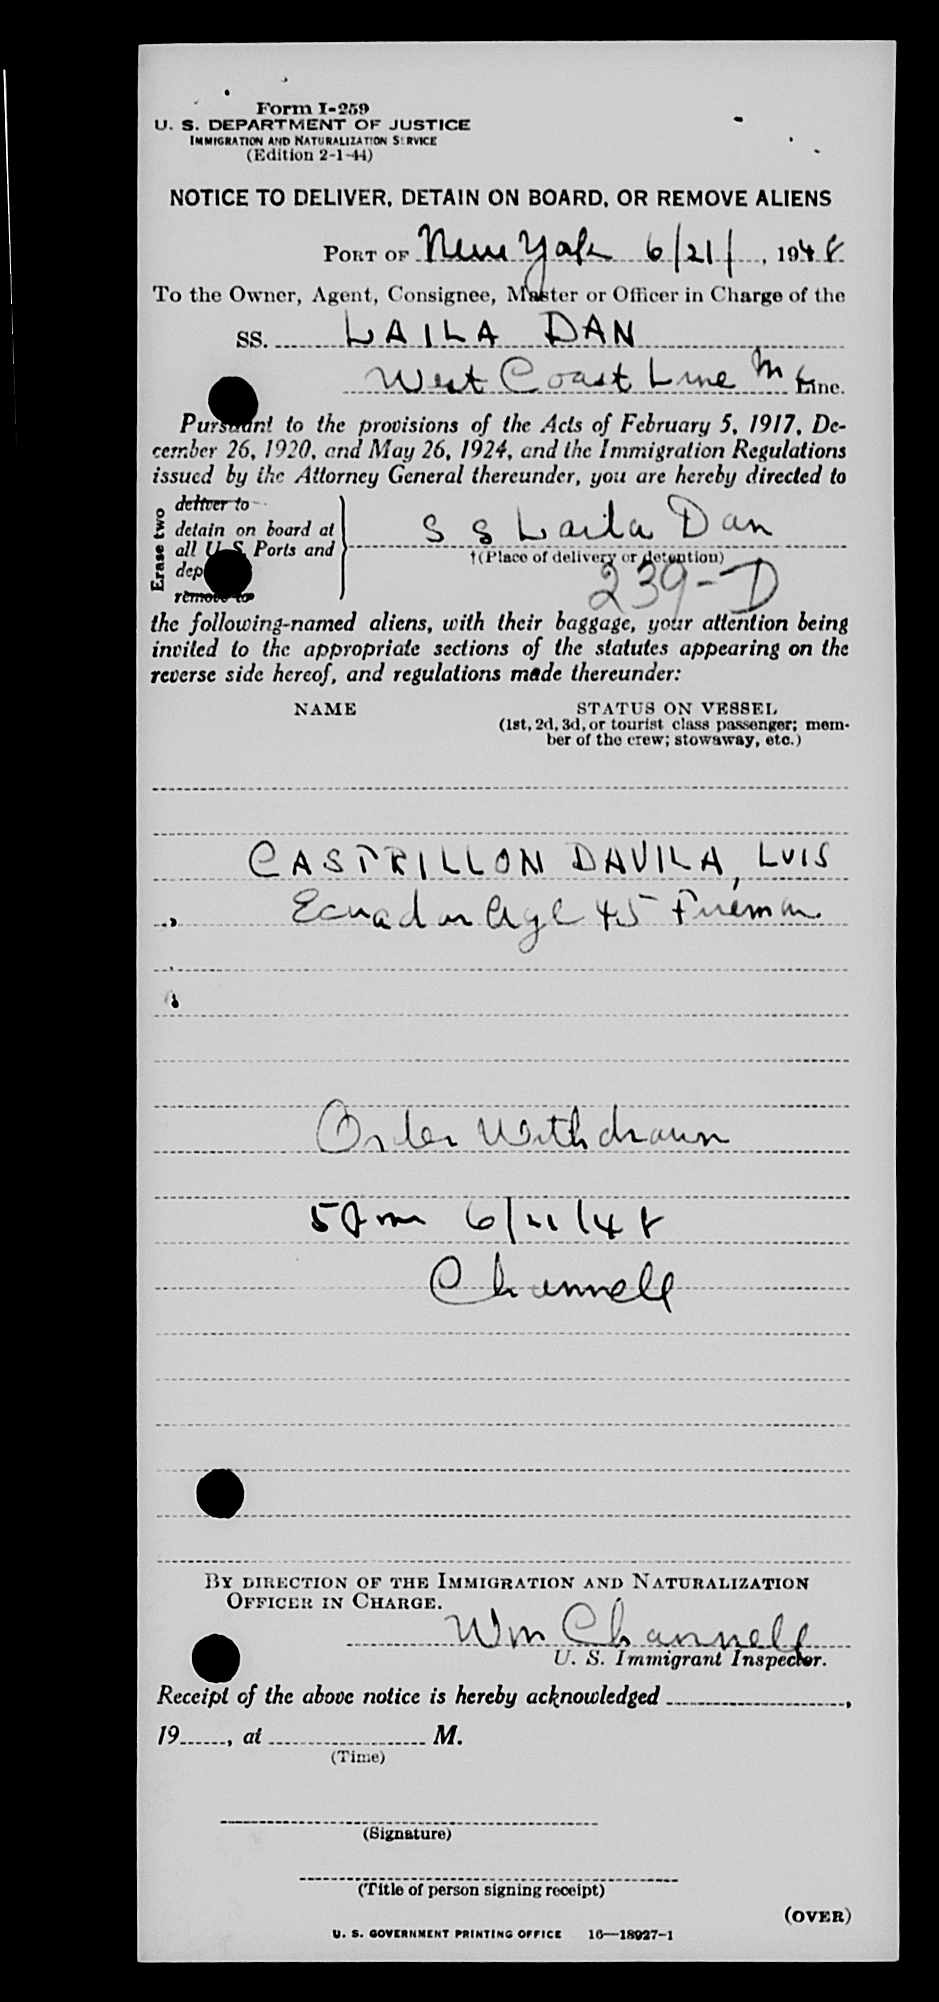 Form I-259
U. S. DEPARTMENT OF JUSTICE
IMMIGRATION AND NATURALIZATION SERVICE
(Edition 2-1-44)
NOTICE TO DELIVER, DETAIN ON BOARD, OR REMOVE ALIENS
PORT OF New York 6/21/, 1948
To the Owner, Agent, Consignee, Master or Officer in Charge of the
SS. LAILA DAN
West Coast Line Line.
Pursuant to the provisions of the Acts of February 5, 1917, De-
cember 26, 1920, and May 26, 1924, and the Immigration Regulations
issued by the Attorney General thereunder, you are hereby directed to
Erase two
deliver to
detain on board at
all U. S. Ports and
dep
remove to
S S Laila Dan
†(Place of delivery or detention)
239-D
the following-named aliens, with their baggage, your attention being
invited to the appropriate sections of the statutes appearing on the
reverse side hereof, and regulations made thereunder:
NAME STATUS ON VESSEL
(1st, 2d, 3d, or tourist class passenger; mem-
ber of the crew; stowaway, etc.)
CASTRILLON DAVILA, LUIS
Ecuador Age 45 Fireman
Order Withdrawn
5 pm 6/21/48
Channell
BY DIRECTION OF THE IMMIGRATION AND NATURALIZATION
OFFICER IN CHARGE.
Wm Channell
U. S. Immigrant Inspector.
Receipt of the above notice is hereby acknowledged ,
19 , at M.
(Time)
(Signature)
(Title of person signing receipt)
(OVER)
U. S. GOVERNMENT PRINTING OFFICE 16—18927-1